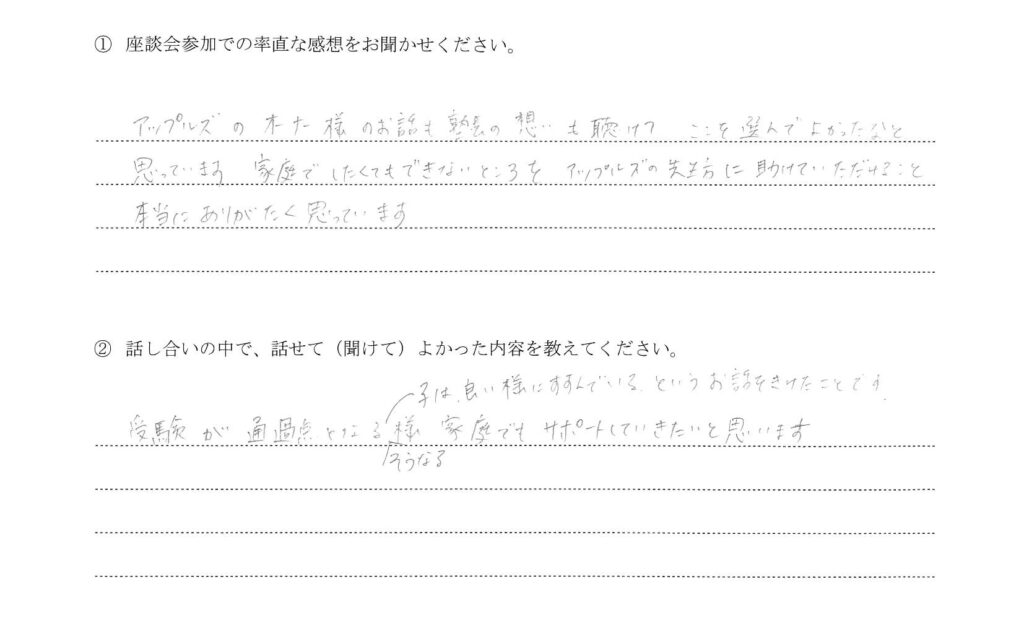 ① 座談会参加での率直な感想をお聞かせください。
アップルズのオーナー様のお話も塾長の想いも聴けて ここを選んでよかったなと
思っています 家庭でしたくてもできないところを アップルズの先生方に助けていただけること
本当にありがたく思っています
② 話し合いの中で、話せて（聞けて）よかった内容を教えてください。
子は、良い様にすすんでいる、というお話をきけたことです。
受験が通過点となる様 家庭でもサポートしていきたいと思います
そうなる